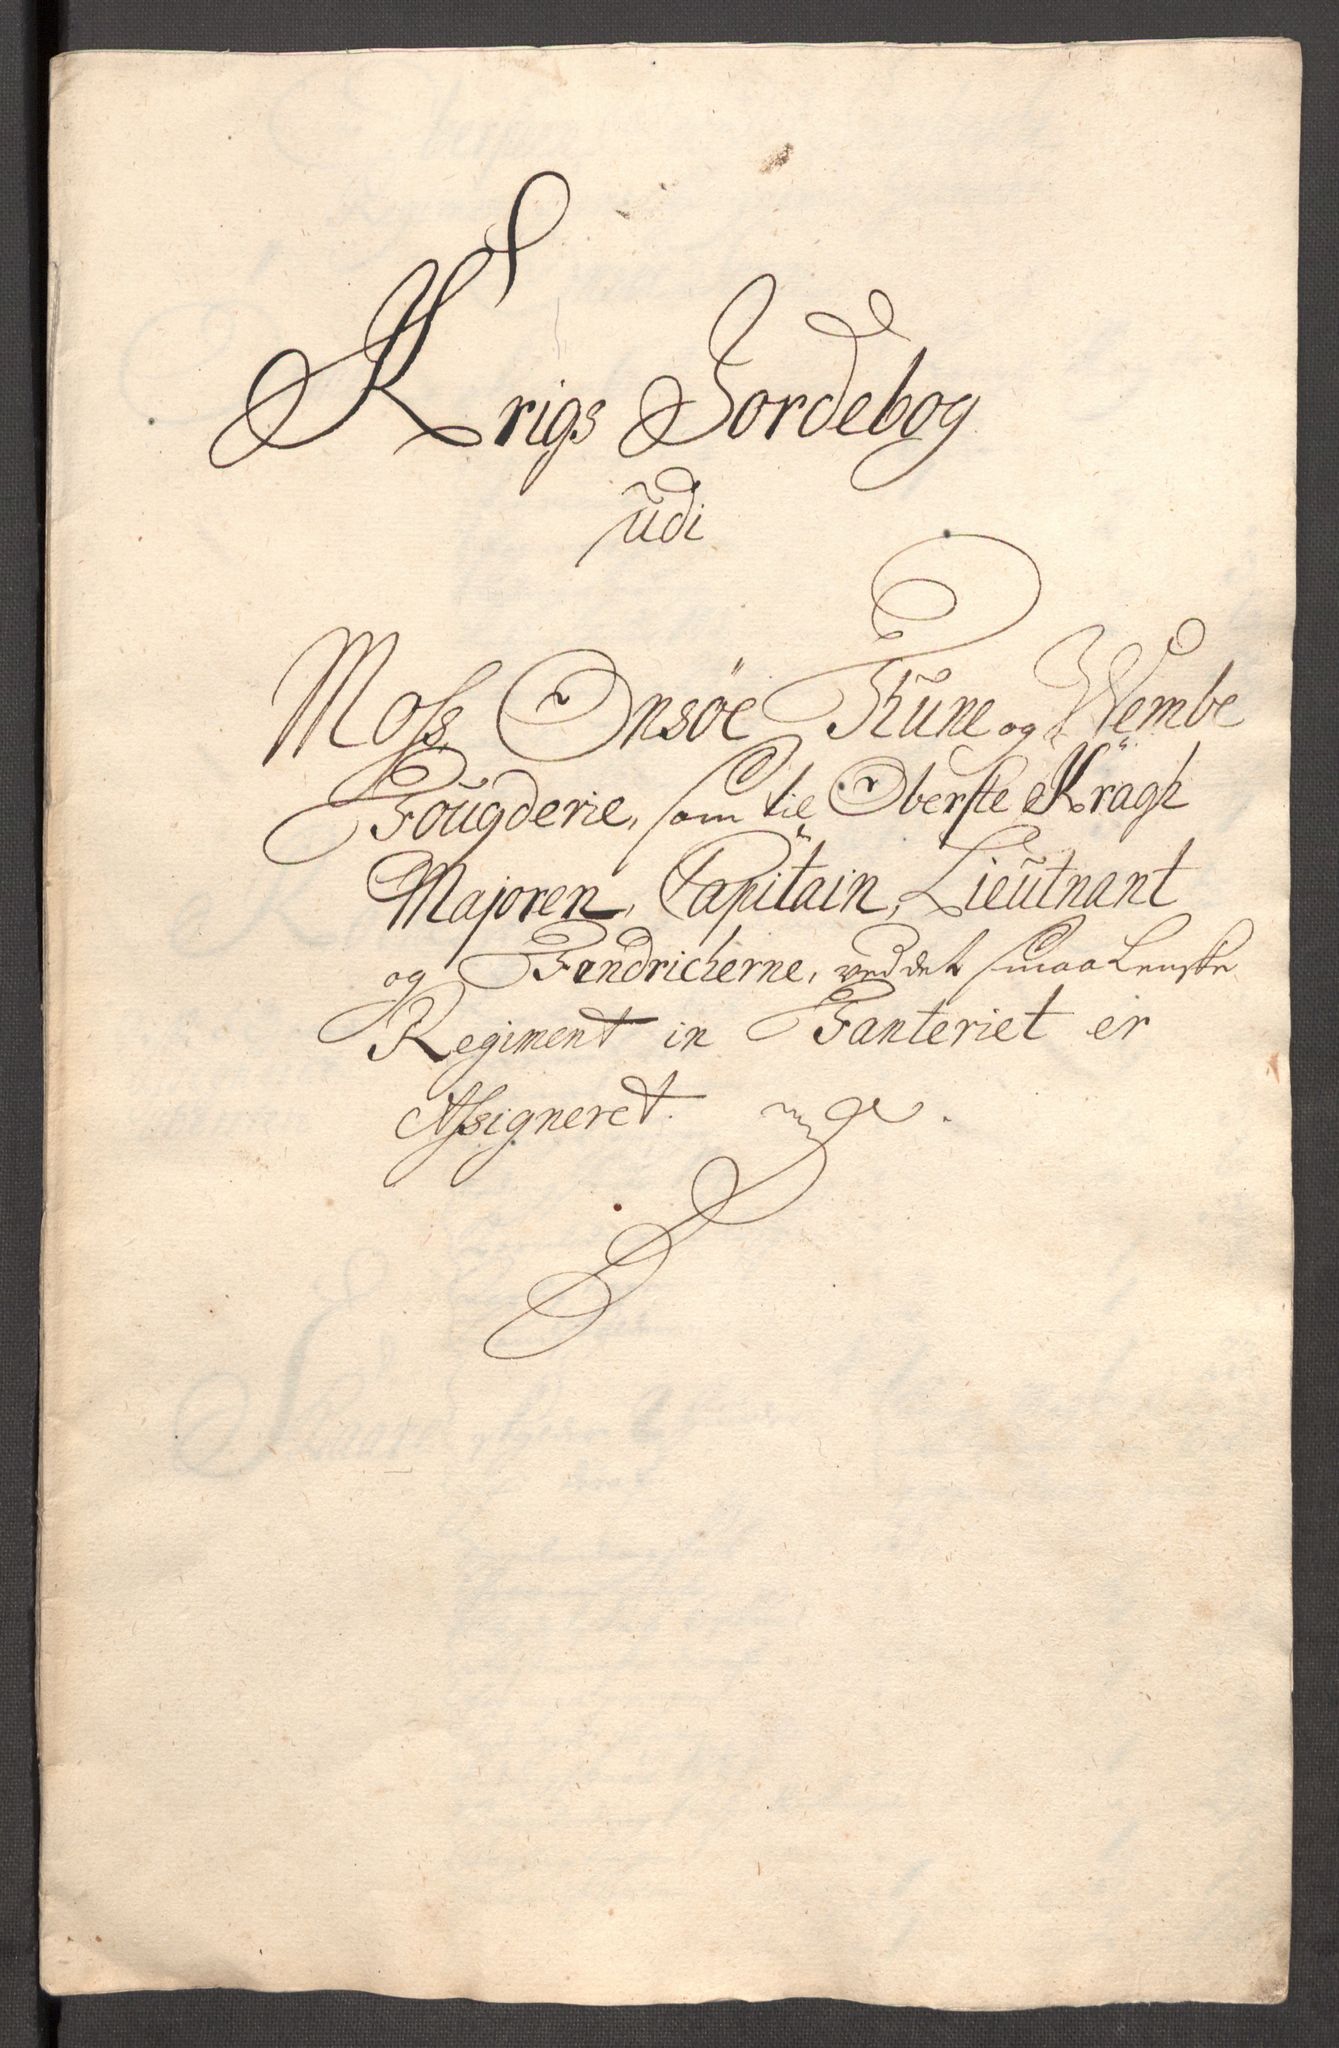 Krigs Jordebog
udi
Moss, Onsøe Thune og Wembe
Fougderie, som til Oberste Kragh
Majoren, Capitain, Lieutnant
og Fendricherne, ved det Smaalenske
Regiment in Fanteriet er
Assigneret.